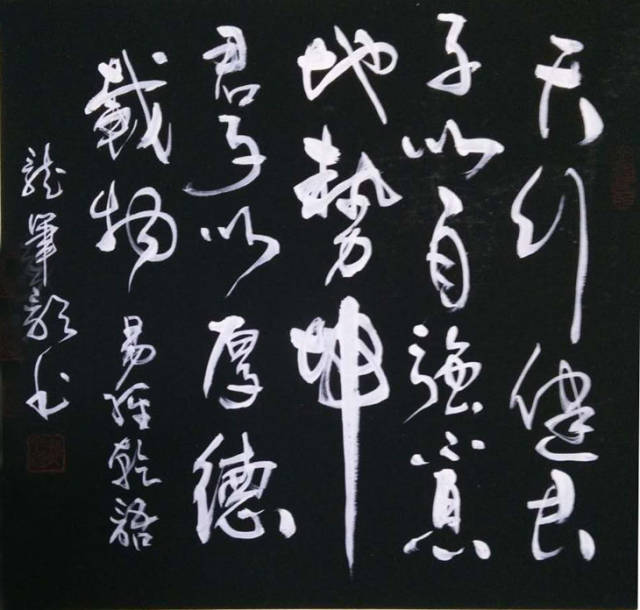 天行健君
子以自強不息
地勢坤
君子以厚德
載物 易經乾語
龍軍彩书